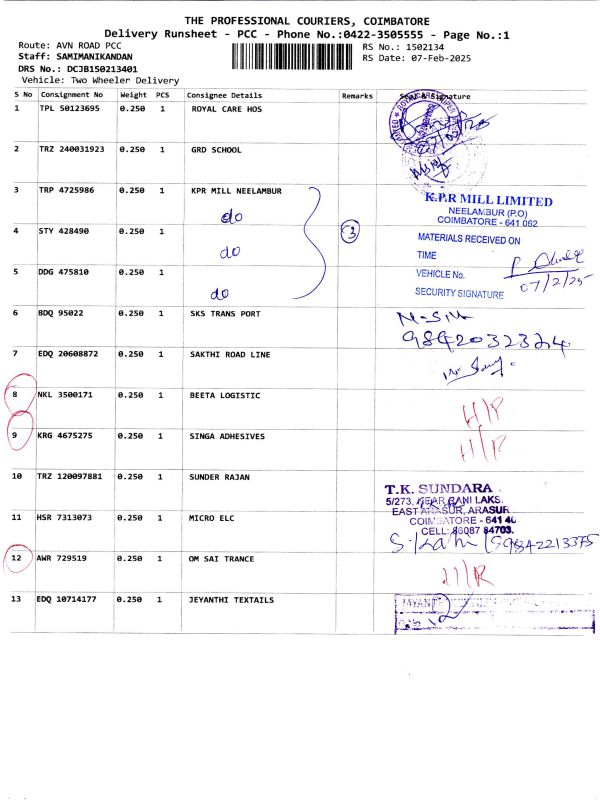 THE PROFESSIONAL COURIERS, COIMBATORE
Delivery Runsheet - PCC - Phone No.:0422-3505555 - Page No.:1
Route: AVN ROAD PCC
RS No.: 1502134
Staff: SAMIMANIKANDAN
RS Date: 07-Feb-2025
DRS No.: DCJB150213401
Vehicle: Two Wheeler Delivery
S No Consignment No Weight PCS Consignee Details Remarks Seal & Signature
1 TPL 50123695 0.250 1 ROYAL CARE HOS
2 TRZ 240031923 0.250 1 GRD SCHOOL
3 TRP 4725986 0.250 1 KPR MILL NEELAMBUR
do
K.P.R MILL LIMITED
NEELAMBUR (P.O)
COIMBATORE - 641 062
4 STY 428490 0.250 1
3
do
MATERIALS RECEIVED ON
TIME
5 DDG 475810 0.250 1
VEHICLE No.
07/2/25
do
SECURITY SIGNATURE
6 BDQ 95022 0.250 1 SKS TRANS PORT
7 EDQ 20608872 0.250 1 SAKTHI ROAD LINE
8 NKL 3500171 0.250 1 BEETA LOGISTIC
9 KRG 4675275 0.250 1 SINGA ADHESIVES
10 TRZ 120097881 0.250 1 SUNDER RAJAN
T.K. SUNDARA
5/273, NEAR RANI LAKS.
EAST ARASUR, ARASUR
11 HSR 7313073 0.250 1 MICRO ELC
COIMBATORE - 641 40
CELL: 86087 84703.
12 AWR 729519 0.250 1 OM SAI TRANCE
13 EDQ 10714177 0.250 1 JEYANTHI TEXTAILS